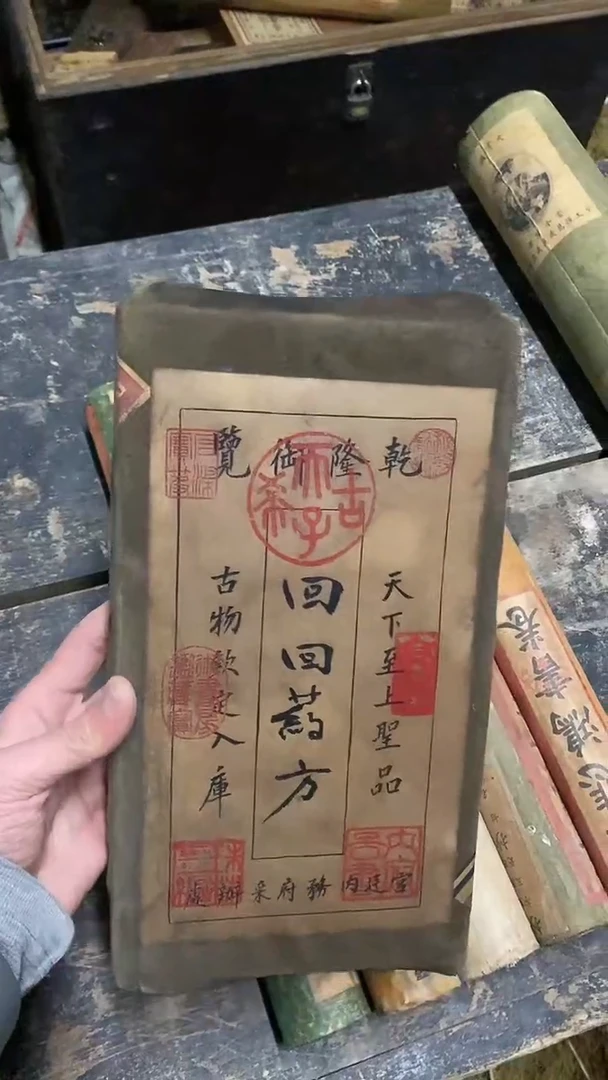 乾隆御覽
古希天子
天下至上聖品
回回葯方
古物欽定入庫
宮廷内務府采辦處